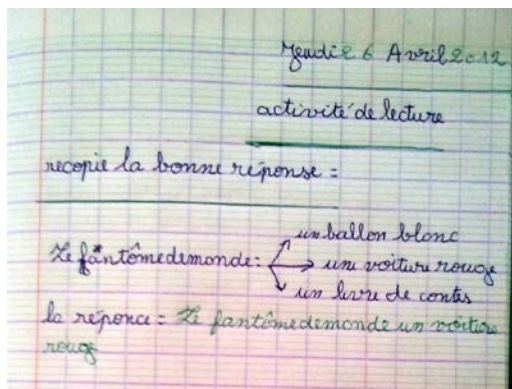 Jeudi 26 Avril 2012
activité de lecture
recopie la bonne réponse =
un ballon blanc
Le fantôme demonde: un voiture rouge
un livre de contes
la réponce = Le fantôme demonde un voiture
roug